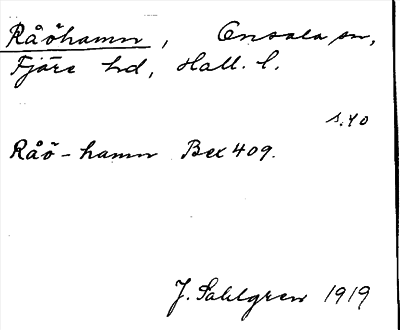 Råöhamn, Onsala sn,
Fjäre hd, Hall. l.
s. 40
Råö - hamn Bex 409.
J. Sahlgren 1919